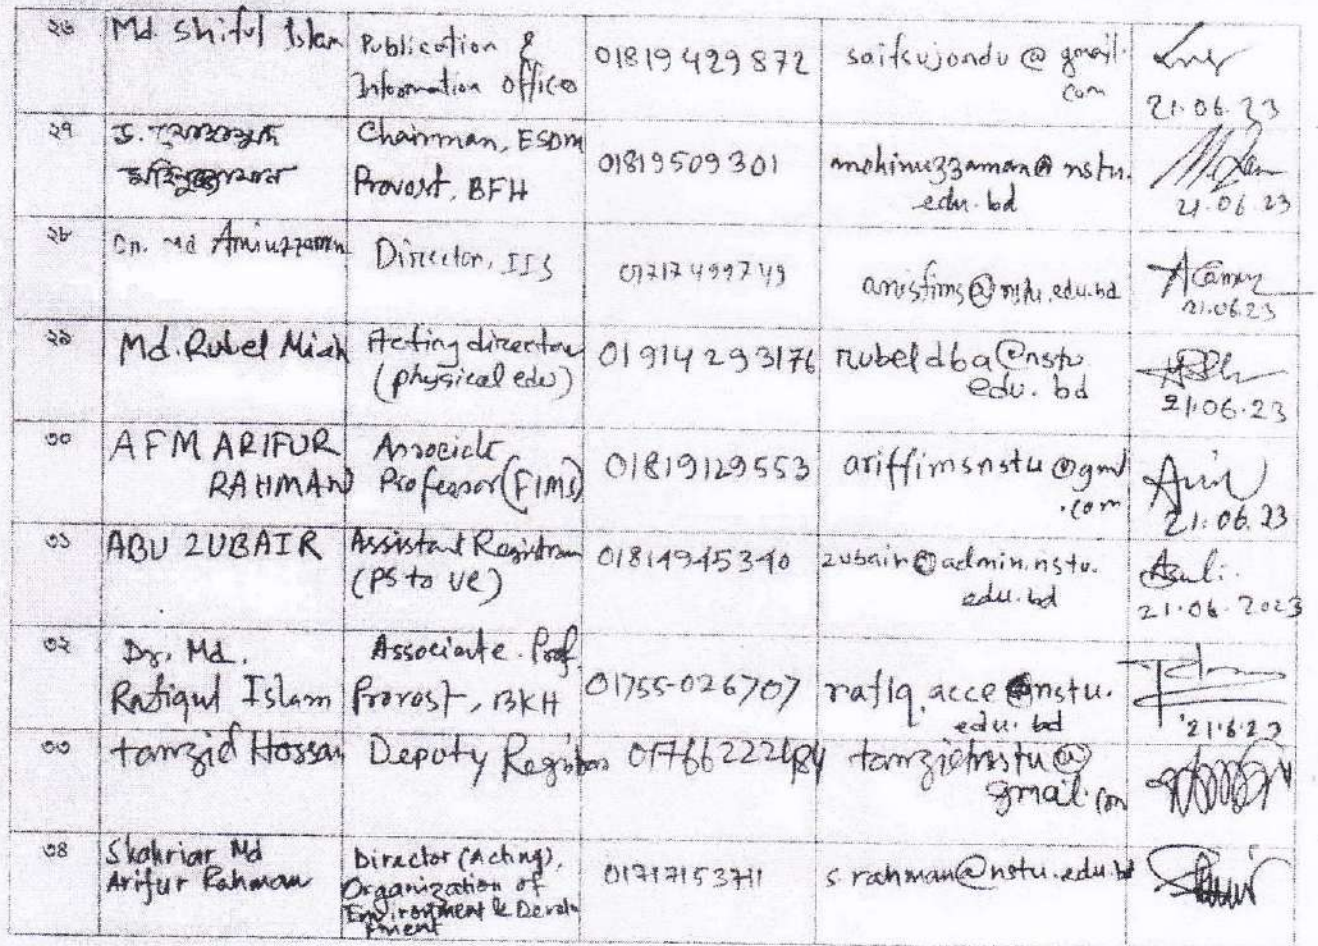 ২৬ Md. Shiful Islam Publication & Information Officer 01819429872 saifsujondu@gmail.com 21.06.23
২৭ ড. মোহাম্মদ মহিনুজ্জামান Chairman, ESDM Provost, BFH 01819509301 mohinuzzaman@nstu.edu.bd 21.06.23
২৮ Dr. Md Director, IIS 01717499749 anisfims@nstu.edu.bd 21.06.23
২৯ Md. Rubel Miah Acting director (physical edu) 01914293176 rubeldba@nstu.edu.bd 21.06.23
৩০ AFM ARIFUR RAHMAN Associate Professor (FIMS) 01819129553 ariffimsnstu@gml.com 21.06.23
৩১ ABU ZUBAIR Assistant Registrar (PS to VC) 01814945340 zubair@admin.nstu.edu.bd 21.06.2023
৩২ Dr. Md. Rafiqul Islam Associate Prof. Provost, BKH 01755-026707 rafiq.acce@nstu.edu.bd 21.6.23
৩৩ tamzid Hossan Deputy Registrar tamzidnstu@gmail.com
৩৪ Shahriar Md Arifur Rahman Director (Acting), Organization of Environment & Development 01717153711 s.rahman@nstu.edu.bd